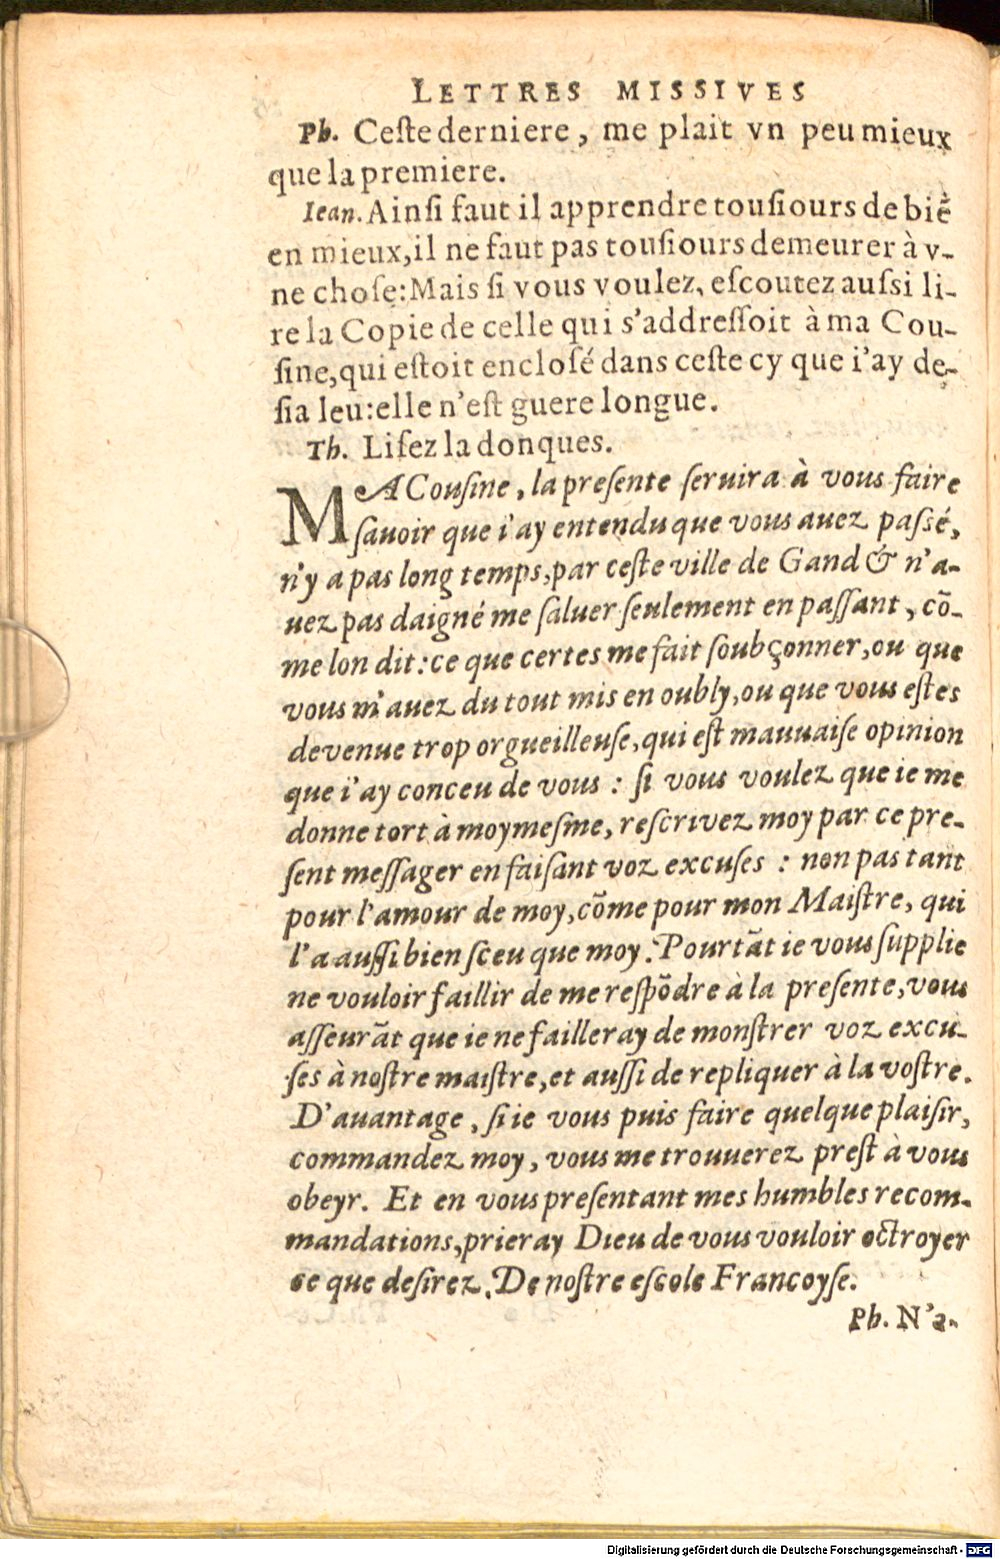 LETTRES MISSIVES
Ph. Ceſte derniere, me plait vn peu mieux
que la premiere.
Iean. Ainſi faut il apprendre touſiours de biē
en mieux, il ne faut pas touſiours demeurer à v-
ne choſe: Mais ſi vous voulez, eſcoutez auſsi li-
re la Copie de celle qui s'addreſſoit à ma Cou-
ſine, qui eſtoit encloſé dans ceſte cy que i'ay de-
ſia leu: elle n'eſt guere longue.
Th. Liſez la donques.
MA Couſine, la preſente ſeruira à vous faire
ſauoir que i'ay entendu que vous auez paſsé,
n'y a pas long temps, par ceſte ville de Gand & n'a-
uez pas daigné me ſaluer ſeulement en paſſant, cō-
me lon dit: ce que certes me fait ſoubçonner, ou que
vous m'auez du tout mis en oubly, ou que vous eſtes
deuenue trop orgueilleuſe, qui eſt mauuaiſe opinion
que i'ay conceu de vous: ſi vous voulez que ie me
donne tort à moymeſme, reſcrivez moy par ce pre-
ſent meſſager en faiſant voz excuſes: non pas tant
pour l'amour de moy, cōme pour mon Maiſtre, qui
l'a auſſi bien ſceu que moy. Pourtāt ie vous ſupplie
ne vouloir faillir de me reſpōdre à la preſente, vous
aſſeurāt que ie ne failleray de monſtrer voz excu-
ſes à noſtre maiſtre, et auſſi de repliquer à la voſtre.
D'auantage, ſi ie vous puis faire quelque plaiſir,
commandez moy, vous me trouuerez preſt à vous
obeyr. Et en vous preſentant mes humbles recom-
mandations, prieray Dieu de vous vouloir octroyer
ce que deſirez. De noſtre eſcole Francoyſe.
Ph. N'a-
Digitalisierung gefördert durch die Deutsche Forschungsgemeinschaft - DFG